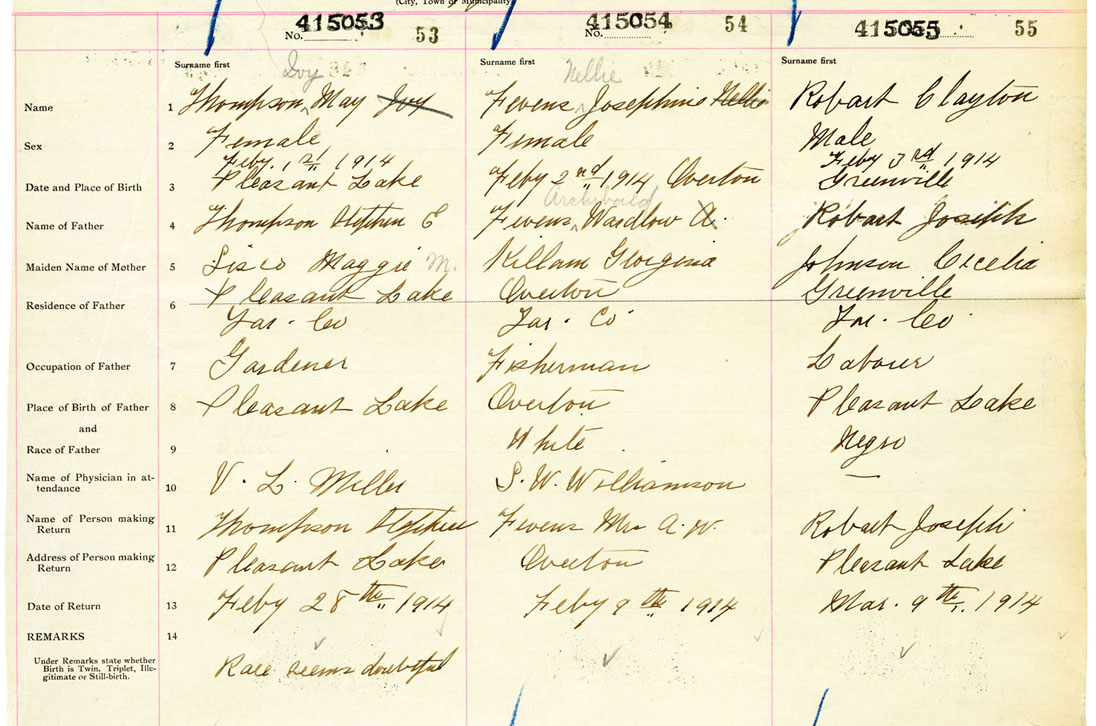 (City, Town or Municipality)
No. 415053 53
No. 415054 54
415055 55
Surname first
Surname first
Surname first
Ivy
Nellie
Name 1 Thompson, May Ivy
Fevens, Josephine Nellie
Robart Clayton
Sex 2 Female
Female
Male
Date and Place of Birth 3 Feby. 1st 1914
Pleasant Lake
Feby 2nd 1914 Overton
Feby 3rd 1914
Greenville
Archibald
Name of Father 4 Thompson Stephen E
Fevens, Wardlow A.
Robart Joseph
Maiden Name of Mother 5 Sisco Maggie M.
Killam Georgina
Johnson Cecelia
Residence of Father 6 Pleasant Lake
Yar. Co
Overton
Yar. Co
Greenville
Yar. Co.
Occupation of Father 7 Gardener
Fisherman
Labourer
Place of Birth of Father 8 Pleasant Lake
Overton
Pleasant Lake
and
Race of Father 9
White
Negro
Name of Physician in at-
tendance 10 V. L. Miller
S. W. Williamson
—
Name of Person making
Return 11 Thompson Stephen
Fevens Mrs A. W.
Robart Joseph
Address of Person making
Return 12 Pleasant Lake
Overton
Pleasant Lake
Date of Return 13 Feby 28th 1914
Feby 9th 1914
Mar. 9th, 1914
REMARKS 14
Under Remarks state whether
Birth is Twin, Triplet, Ille-
gitimate or Still-birth.
Race seems doubtful